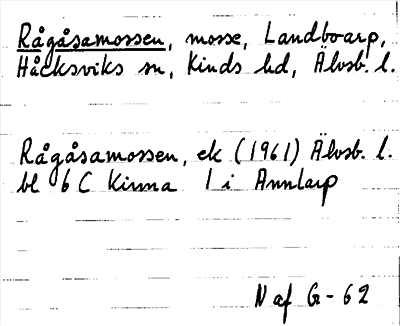 Rågåsamossen, mosse, Landboarp,
Håcksviks sn, Kinds hd, Älvsb. l.
Rågåsamossen, ek (1961) Älvsb. l.
bl 6 C Kinna 1 i Annlarp
N af G - 62